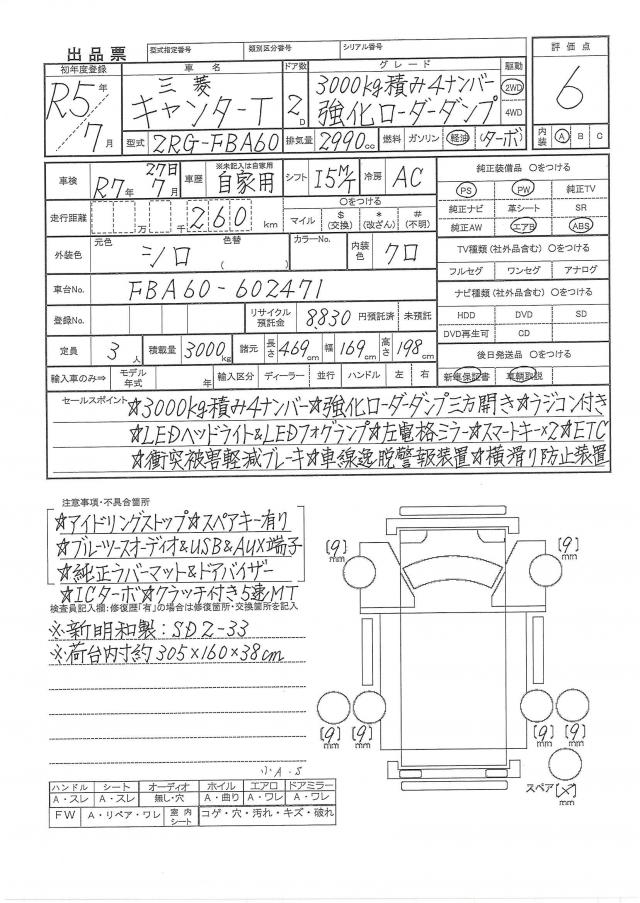 出品票 型式指定番号 類別区分番号 シリアル番号
初年度登録 車名 ドア数 グレード 駆動 評価点
R5年 三菱 3000kg積み4ナンバー 2WD 6
7月 キャンターT 2D 強化ローダーダンプ 4WD
型式 2RG-FBA60 排気量 2990cc 燃料 ガソリン 軽油 (ターボ) 内装 A B C
車検 R7年 7月 27日 車歴 ※未記入は自家用 自家用 シフト I5M/T 冷房 AC 純正装備品 〇をつける
PS PW 純正TV
走行距離 万 千 260 km 〇をつける
マイル $(交換) *(改ざん) #(不明) 純正ナビ 革シート SR
純正AW エアB ABS
外装色 元色 シロ 色替 ( ) カラーNo. 内装色 クロ
TV種類(社外品含む) 〇をつける
フルセグ ワンセグ アナログ
車台No. FBA60-602471
ナビ種類(社外品含む) 〇をつける
登録No. リサイクル預託金 8830 円預託済 未預託 HDD DVD SD
DVD再生可 CD
定員 3人 積載量 3000kg 諸元 長さ 469cm 幅 169cm 高さ 198cm
後日発送品 〇をつける
輸入車のみ⇒ モデル年式 年 輸入区分 ディーラー 並行 ハンドル 左 右 新車保証書 車輌取説
セールスポイント ☆3000kg積み4ナンバー☆強化ローダーダンプ三方開き☆ラジコン付き
☆LEDヘッドライト&LEDフォグランプ☆左電格ミラー☆スマートキー×2☆ETC
☆衝突被害軽減ブレーキ☆車線逸脱警報装置☆横滑り防止装置
注意事項・不具合箇所
☆アイドリングストップ☆スペアキー有り
☆ブルーツースオーディオ&USB&AUX端子
☆純正ラバーマット&ドアバイザー
☆ICターボ☆クラッチ付き5速MT
検査員記入欄:修復歴「有」の場合は修復箇所・交換箇所を記入
※新明和製:SDZ-33
※荷台内寸約305×160×38cm
[9]mm [9]mm
[9]mm [9]mm [9]mm [9]mm
スペア[×]mm
小A・S
ハンドル シート オーディオ ホイル エアロ ドアミラー
A・スレ A・スレ 無し・穴 A・曲り A・ワレ A・ワレ
FW A・リペア・ワレ 室内シート コゲ・穴・汚れ・キズ・破れ